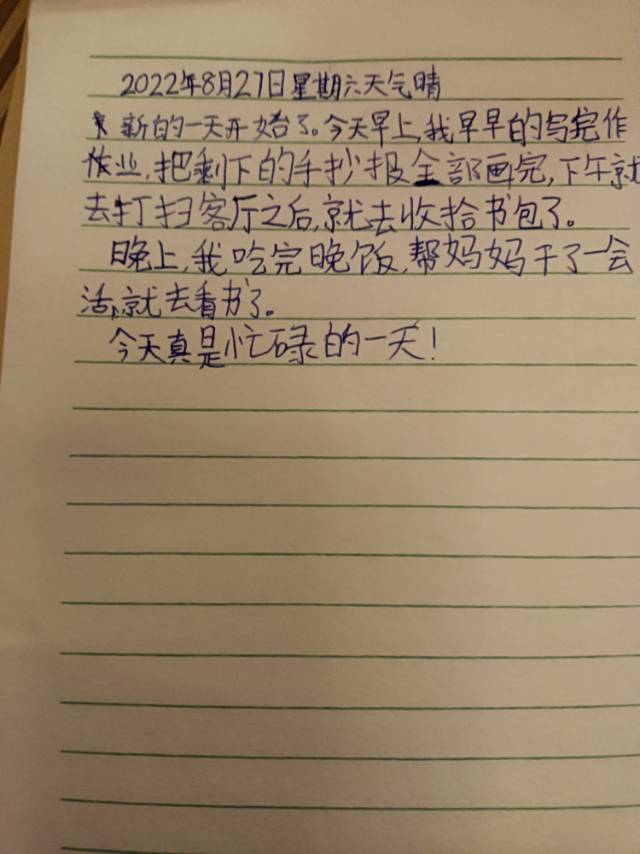 2022年8月27日星期六天气晴
新的一天开始了。今天早上,我早早的写完作
作业,把剩下的手抄报全部画完,下午就
去打扫客厅之后,就去收拾书包了。
晚上,我吃完晚饭,帮妈妈干了一会
活,就去看书了。
今天真是忙碌的一天!